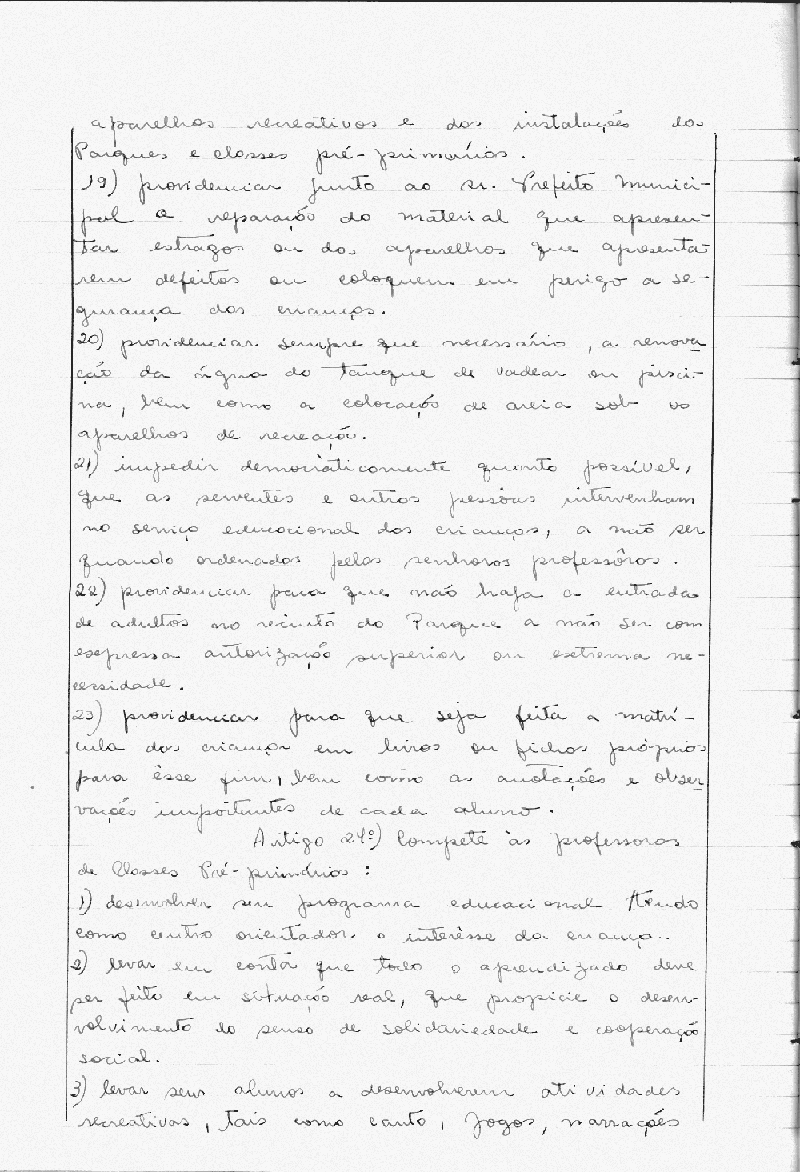 aparelhos recreativos e das instalações dos
Parques e classes pré-primários.
19) providenciar junto ao sr. Prefeito Munici-
pal a reparação do material que apresen-
tar estragos ou dos aparelhos que apresenta-
rem defeitos ou coloquem em perigo a se-
gurança das crianças.
20) providenciar sempre que necessário, a renova
ção da água do tanque de vadear ou pisci-
na, bem como a colocação de areia sob os
aparelhos de recreação.
21) impedir democràticamente quanto possível,
que as serventes e outras pessôas intervenham
no serviço educacional das crianças, a não ser
quando ordenados pelos senhores professôres.
22) providenciar para que não haja a entrada
de adultos no recinto do Parque a não ser com
expressa autorização superior ou extrema ne-
cessidade.
23) providenciar para que seja feita a matrí-
cula das crianças em livros ou fichas próprios
para êsse fim, bem como as anotações e obser
vações importantes de cada aluno.
Artigo 24º) Compete às professoras
de Classes Pré-primários :
1) desenvolver seu programa educacional tendo
como centro orientador o interêsse da criança.
2) levar em conta que todo o aprendizado deve
ser feito em situação real, que propicie o desen-
volvimento do senso de solidariedade e cooperação
social.
3) levar seus alunos a desenvolverem atividades
recreativas, tais como canto, jogos, narrações